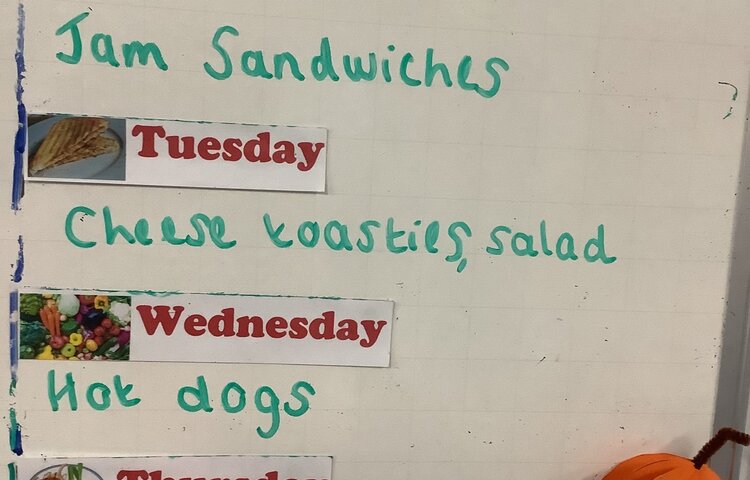 Jam Sandwiches
Tuesday
Cheese toasties, salad
Wednesday
Hot dogs
Thursday